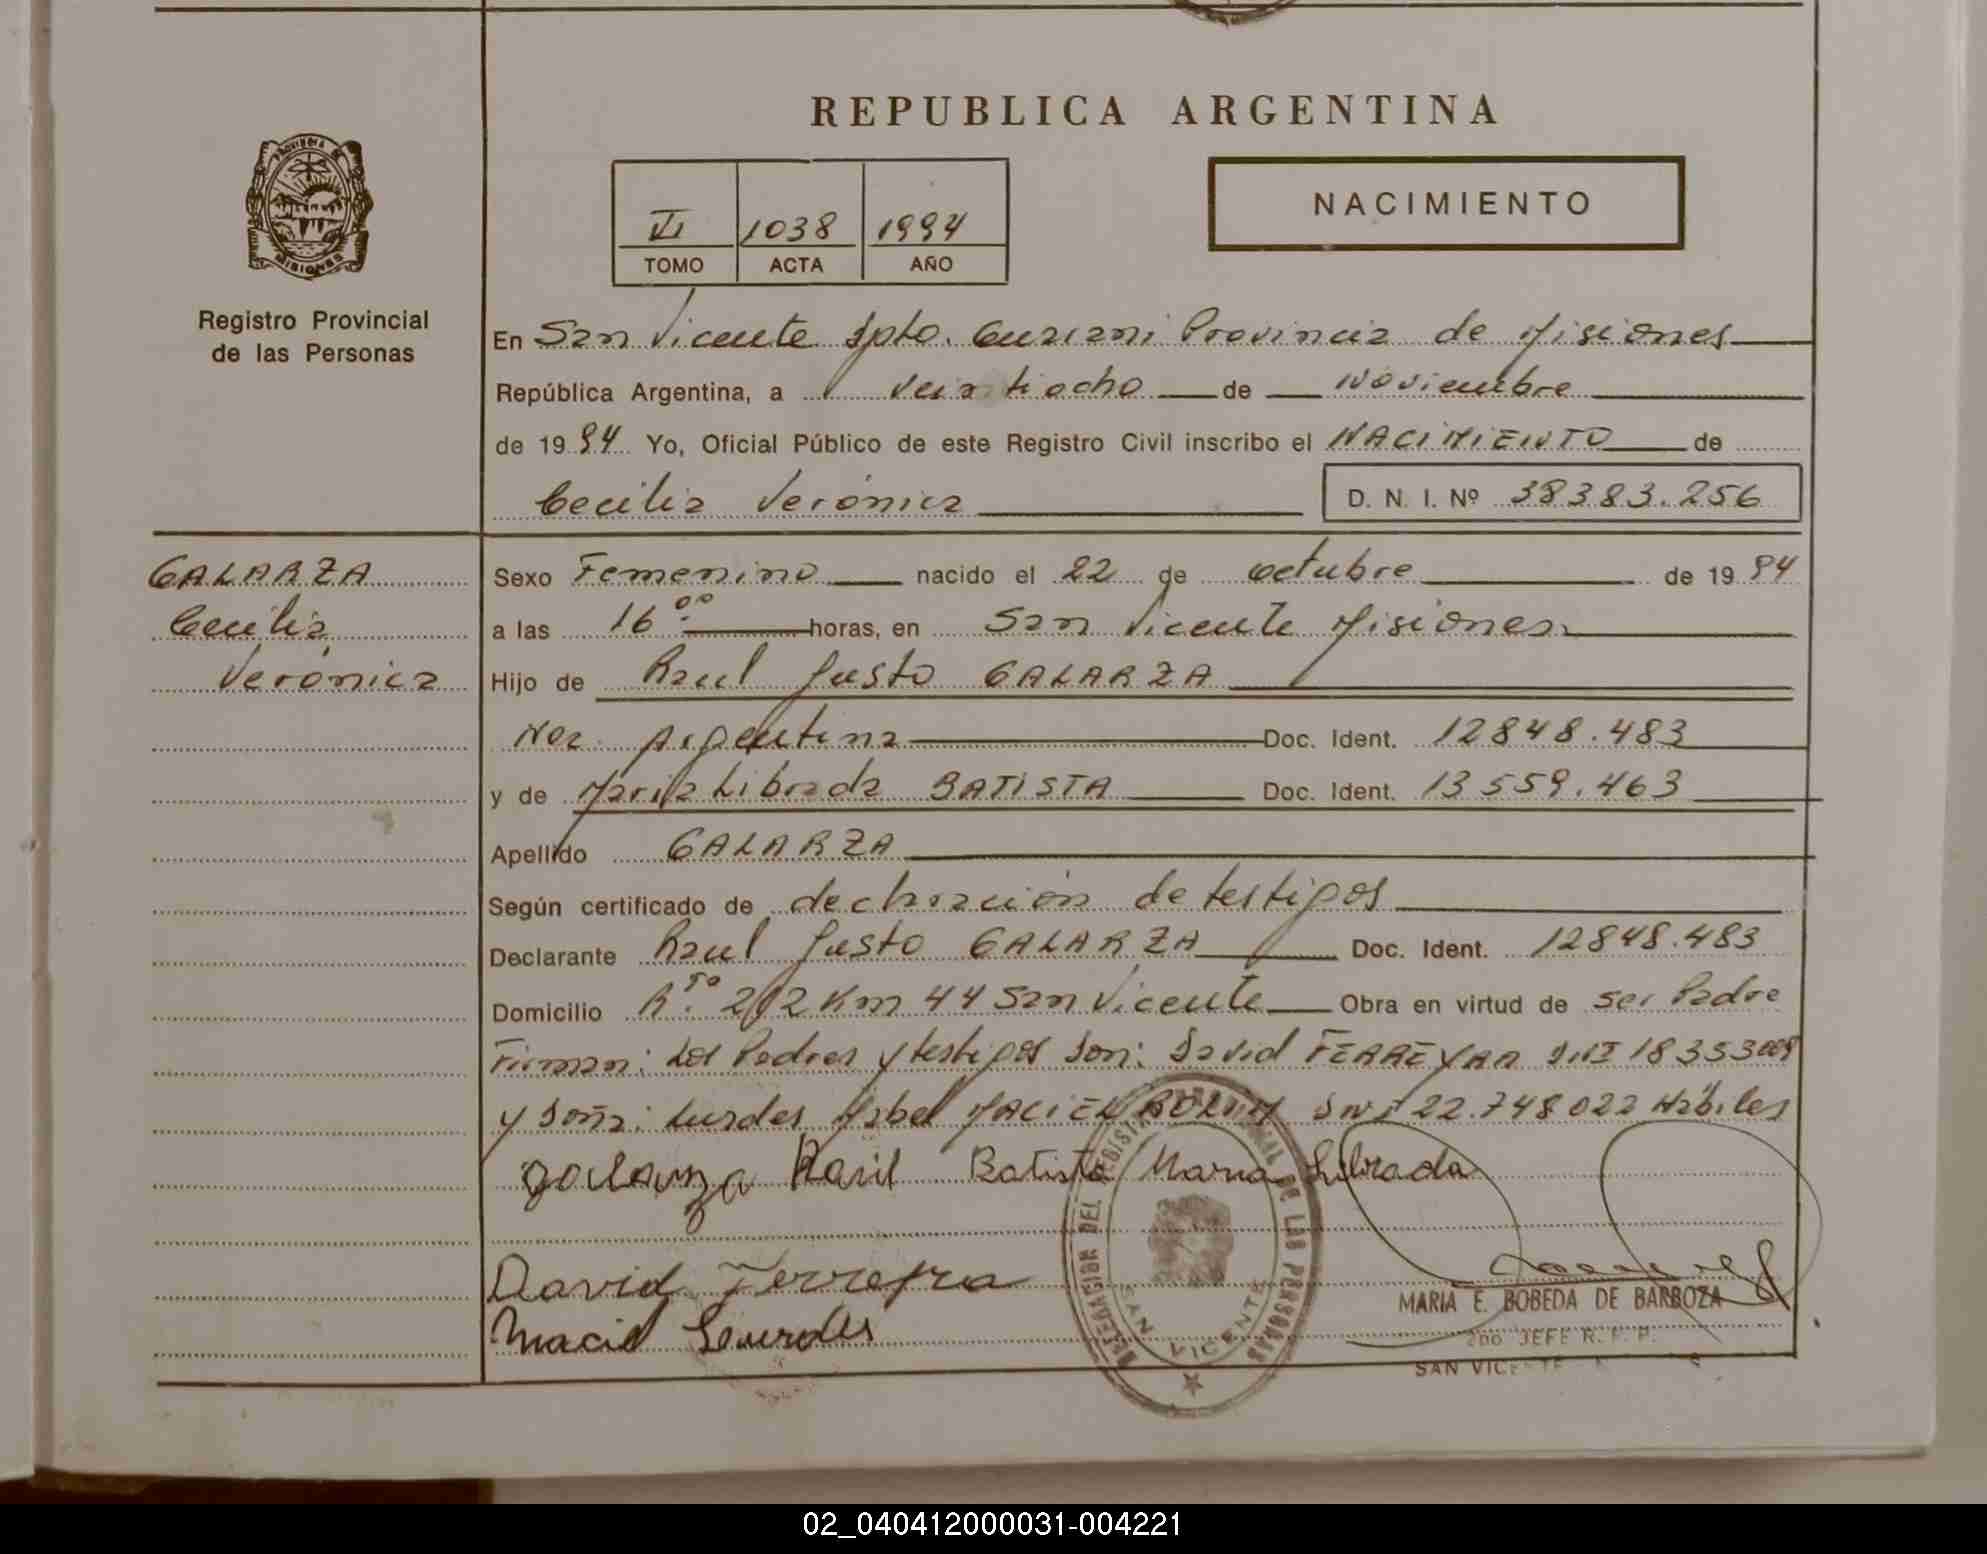 REPUBLICA ARGENTINA
PROVINCIA DE
MISIONES
Registro Provincial
de las Personas
VI 1038 1994
TOMO ACTA AÑO
NACIMIENTO
En San Vicente Dpto. Guaraní Provincia de Misiones
República Argentina, a veintiocho de Noviembre
de 1994 Yo, Oficial Público de este Registro Civil inscribo el NACIMIENTO de
Cecilia Verónica D. N. I. Nº 38383.256
GALARZA
Cecilia
Verónica
Sexo Femenino nacido el 22 de octubre de 1994
a las 16.00 horas, en San Vicente Misiones
Hijo de Raul Justo GALARZA
Nac. Argentina Doc. Ident. 12848.483
y de Maria Librada BATISTA Doc. Ident. 13559.463
Apellido GALARZA
Según certificado de declaración de testigos
Declarante Raul Justo GALARZA Doc. Ident. 12848.483
Domicilio 212 Km 44 San Vicente Obra en virtud de ser Padre
Firman: Los Padres y testigos Son: David FERREYRA DNI 18353009
y Doña: Lurdes Mabel MACIEL DNI 22.748022 Hábiles
Galarza Raúl Batista Maria Librada
David Ferreyra
Maciel Lourdes
DELEGACION DEL REGISTRO PROVINCIAL DE LAS PERSONAS
SAN VICENTE
MARIA E. BOBEDA DE BARBOZA
2do JEFE R. P. P.
SAN VICENTE
02_040412000031-004221